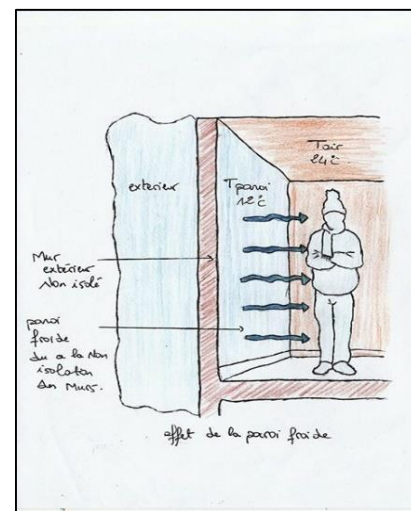 extérieur
Tparoi
12°C
Tair
24°C
Mur
extérieur
Non isolé
paroi
froide
du a la Non
isolation
des Murs.
effet de la paroi froide